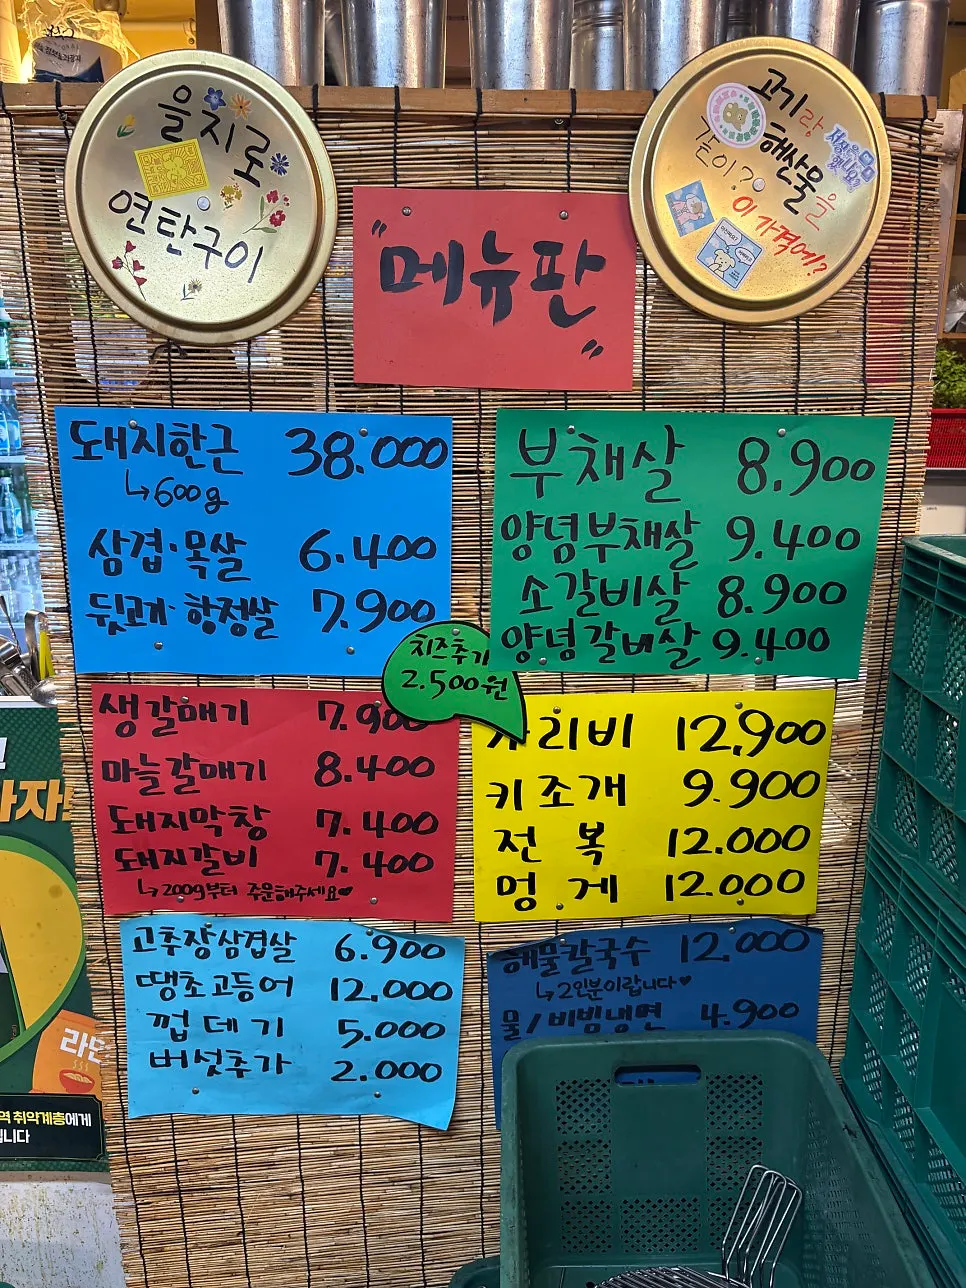 을지로
연탄구이
고기랑
해산물을
같이?
이 가격에?
"메뉴판"
돼지한근 38.000
↳600g
삼겹·목살 6.400
뒷고기·항정살 7.900
부채살 8.900
양념부채살 9.400
소갈비살 8.900
양념갈비살 9.400
치즈추가
2.500원
생갈매기 7.900
마늘갈매기 8.400
돼지막창 7.400
돼지갈비 7.400
↳200g부터 주문해주세요♥
리비 12,900
키조개 9.900
전복 12.000
멍게 12.000
고추장삼겹살 6.900
땡초고등어 12.000
껍데기 5.000
버섯추가 2.000
해물칼국수 12,000
↳2인분이랍니다♥
물/비빔냉면 4.900
취약계층에게